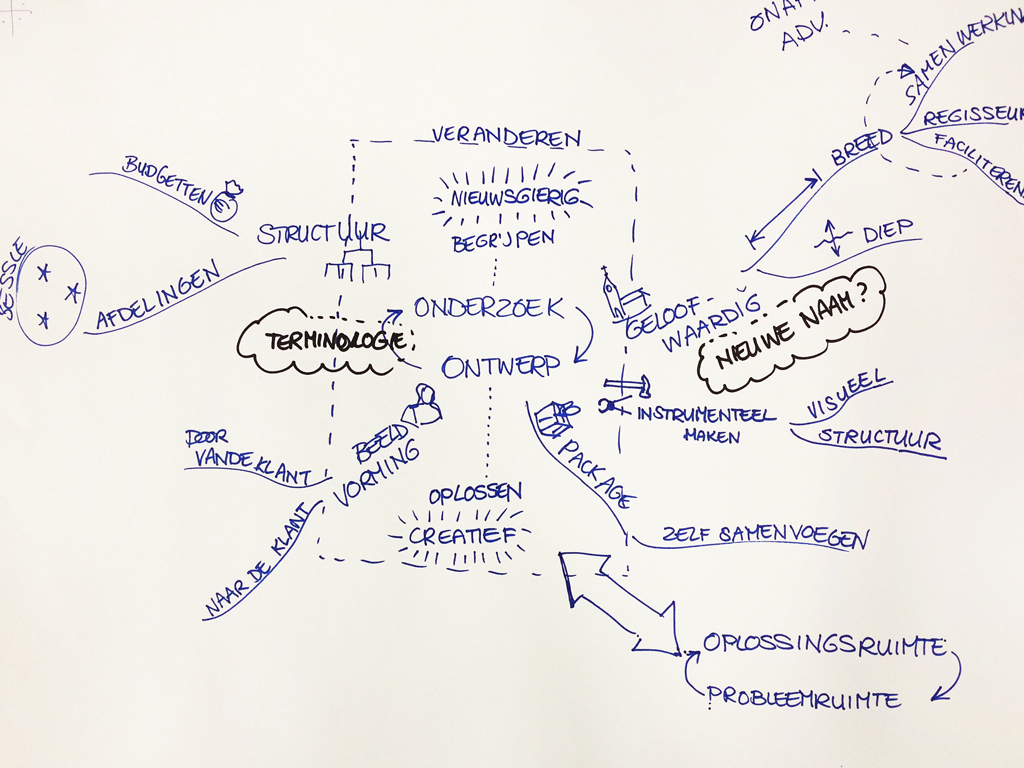 ADV.
SAMENWERKIN
REGISSEUR
FACILITEREN
BREED
DIEP
VERANDEREN
NIEUWSGIERIG
BEGRIJPEN
BUDGETTEN
STRUCTUUR
AFDELINGEN
SESSIE
ONDERZOEK
ONTWERP
TERMINOLOGIE
GELOOF-
WAARDIG
NIEUWE NAAM?
INSTRUMENTEEL
MAKEN
VISUEEL
STRUCTUUR
BEELD
VORMING
DOOR
VAN DE KLANT
NAAR DE KLANT
PACKAGE
ZELF SAMENVOEGEN
OPLOSSEN
CREATIEF
OPLOSSINGSRUIMTE
PROBLEEMRUIMTE